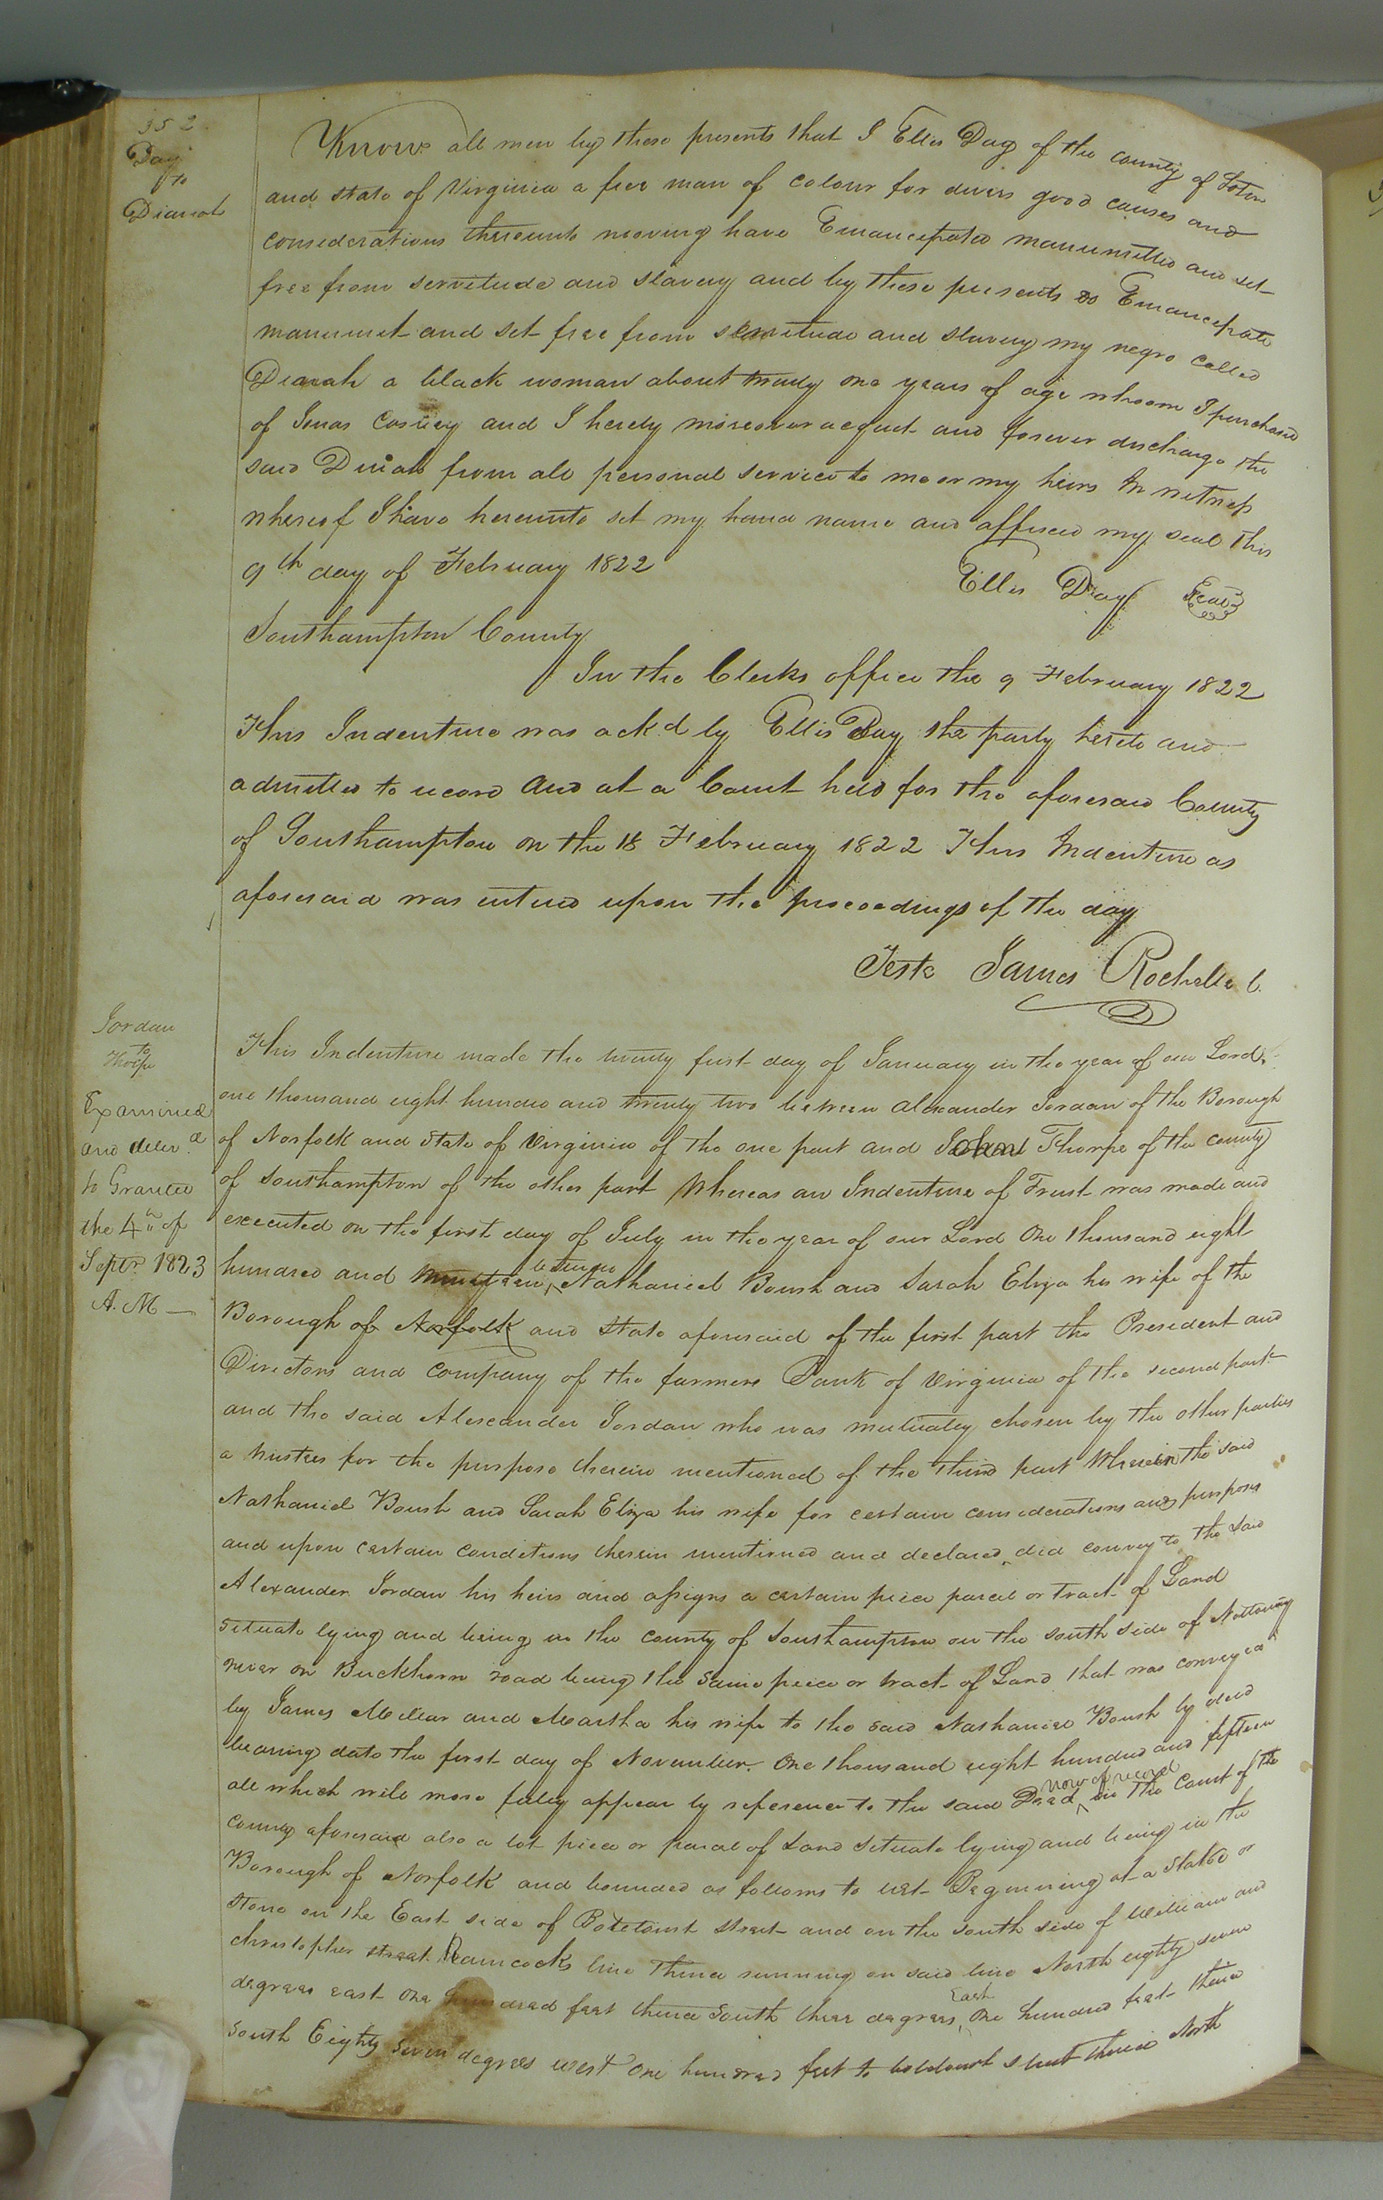 352
Day
to
Dianah
Know all men by these presents that I Ellis Day of the county of Soton
and state of Virginia a free man of colour for divers good causes and
considerations thereunto moving have Emancipated manumitted and set
free from servitude and slavery and by these presents do Emancipate
manumit and set free from servitude and slavery my negro called
Dianah a black woman about twenty one years of age whoom I purchased
of Jonas and I hereby moreover acquit and forever discharge the
said Dinah from all personal service to me or my heirs In witness
whereof I have hereunto set my hand name and affixed my seal this
9th day of February 1822
Ellis Day Seal
Southampton County
In the Clerks office the 9 February 1822
This Indenture was ackd by Ellis Day the party hereto and
admitted to record And at a Court held for the aforesaid County
of Southampton on the 18 February 1822 This Indenture as
aforesaid was entered upon the proceedings of the day
Teste James Rochelle C.
Jordan
to
Thorpe
Examined
and delivd
to Grantee
the 4th of
Septr 1823
A. M
This Indenture made the twenty first day of January in the year of our Lord
one thousand eight hundred and twenty two between Alexander Jordan of the Borough
of Norfolk and State of Virginia of the one part and John Thorpe of the county
of Southampton of the other part Whereas an Indenture of Trust was made and
executed on the first day of July in the year of our Lord One thousand eight
hundred and nineteen between Nathaniel Boush and Sarah Eliza his wife of the
Borough of Norfolk and State aforesaid of the first part the President and
Directors and Company of the farmers Bank of Virginia of the second part
and the said Alexander Jordan who was mutually chosen by the other parties
a trustee for the purpose therein mentioned of the third part Wherein the said
Nathaniel Boush and Sarah Eliza his wife for certain considerations and purposes
and upon certain conditions therein mentioned and declared did convey to the said
Alexander Jordan his heirs and assigns a certain piece parcel or tract of Land
situate lying and being in the county of Southampton on the south side of Nottoway
river on Buckhorn road being the same peice or tract of Land that was conveyed
by James Millar and Martha his wife to the said Nathaniel Boush by deed
bearing date the first day of November One thousand eight hundred and fifteen
all which will more fully appear by reference to the said Deed now of record in the Court of the
county aforesaid also a lot piece or parcel of Land situate lying and being in the
Borough of Norfolk and bounded as follows to wit Beginning at a Stake or
stone on the East side of Botetourt street and on the south side of William and
christopher street Hancocks line thence running on said line North eighty seven
degrees east one hundred feet thence South three degrees East one hundred feet thence
South Eighty seven degrees west one hundred feet to street thence North